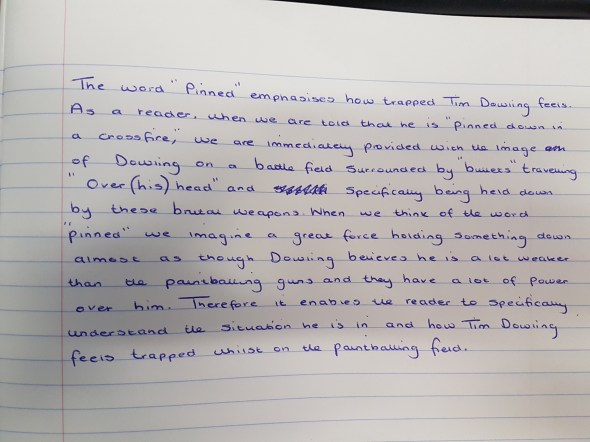 The word "Pinned" emphasises how trapped Tim Dowling feels.
As a reader, when we are told that he is "pinned down in
a crossfire," we are immediately provided with the image
of Dowling on a battle field surrounded by "bullets" travelling
"Over (his) head" and specifically being held down
by these brutal weapons. When we think of the word
"pinned" we imagine a great force holding something down
almost as though Dowling believes he is a lot weaker
than the paintballing guns and they have a lot of power
over him. Therefore it enables the reader to specifically
understand the situation he is in and how Tim Dowling
feels trapped whilst on the paintballing field.